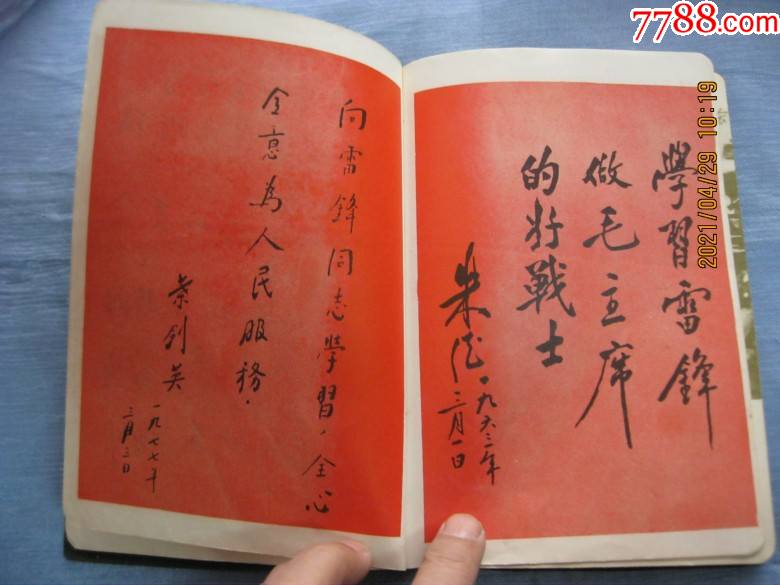 7788.com
2021/04/29 10:19
學習雷鋒
做毛主席
的好戰士
朱德
一九六三年
三月一日
向雷鋒同志學習，全心
全意為人民服務．
葉劍英
一九七七年
三月三日